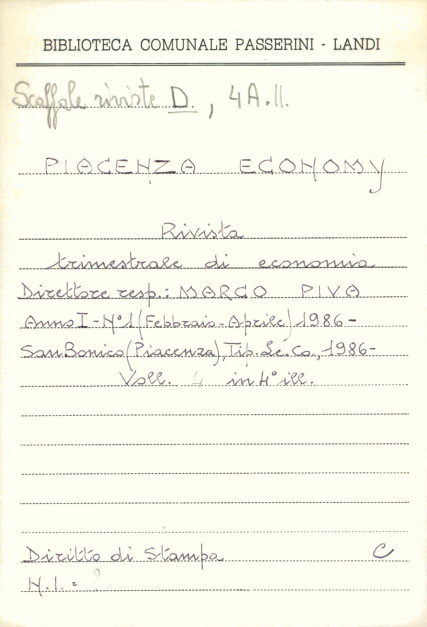 BIBLIOTECA COMUNALE PASSERINI - LANDI
Scaffale riviste D. , 4A.II.
PIACENZA ECONOMY
Rivista
trimestrale di economia
Direttore resp.: MARCO PIVA
Anno I - N° 1 (Febbraio - Aprile) 1986 -
San Bonico (Piacenza), Tip. Le. Co., 1986 -
Voll. in 4° ill.
Diritto di Stampa C
N. I. =